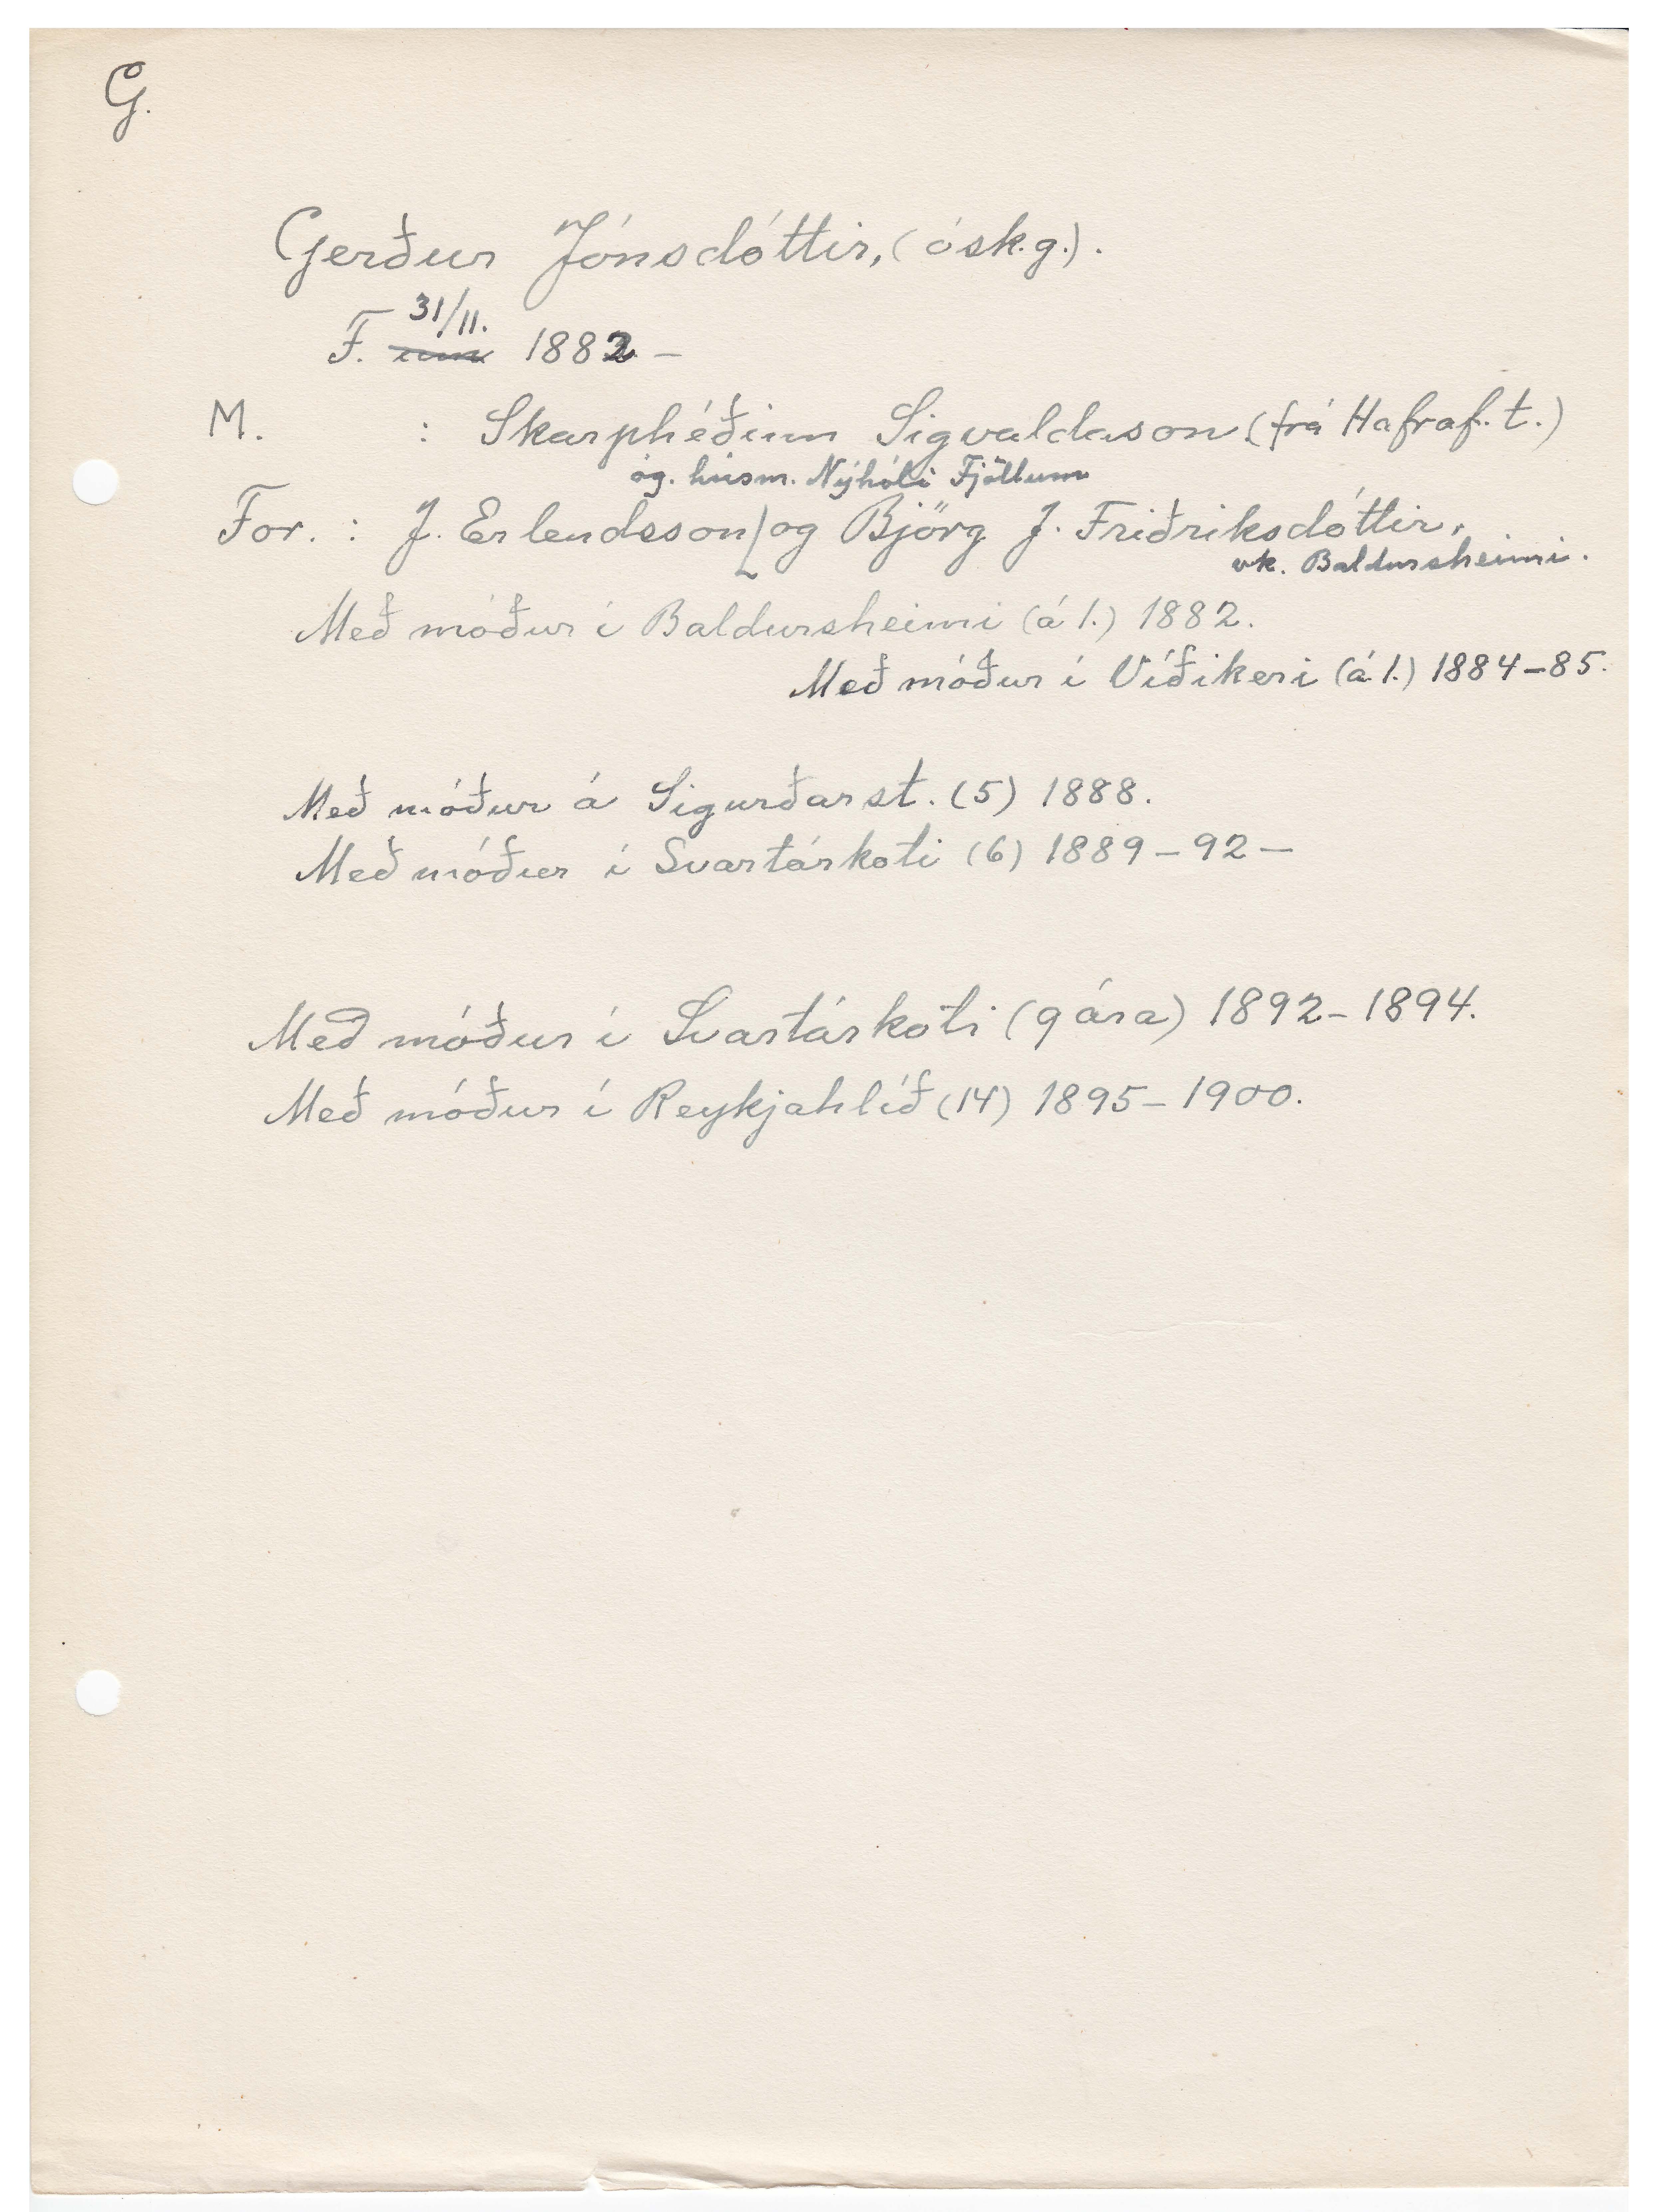 G.
Gerður Jónsdóttir, (ósk.g.).
31/11.
F. um 1882 –
M. : Skarphéðinn Sigvaldason (frá Hafraf.t.)
óg. húsm. Nýhóli Fjöllum
For. : J. Erlendsson og Björg J. Friðriksdóttir,
vk. Baldursheimi.
Með móður í Baldursheimi (á 1.) 1882.
Með móður í Víðikeri (á 1.) 1884–85.
Með móður á Sigurðarst. (5) 1888.
Með móður í Svartárkoti (6) 1889–92–
Með móður í Svartárkoti (9 ára) 1892–1894.
Með móður í Reykjahlíð (14) 1895–1900.